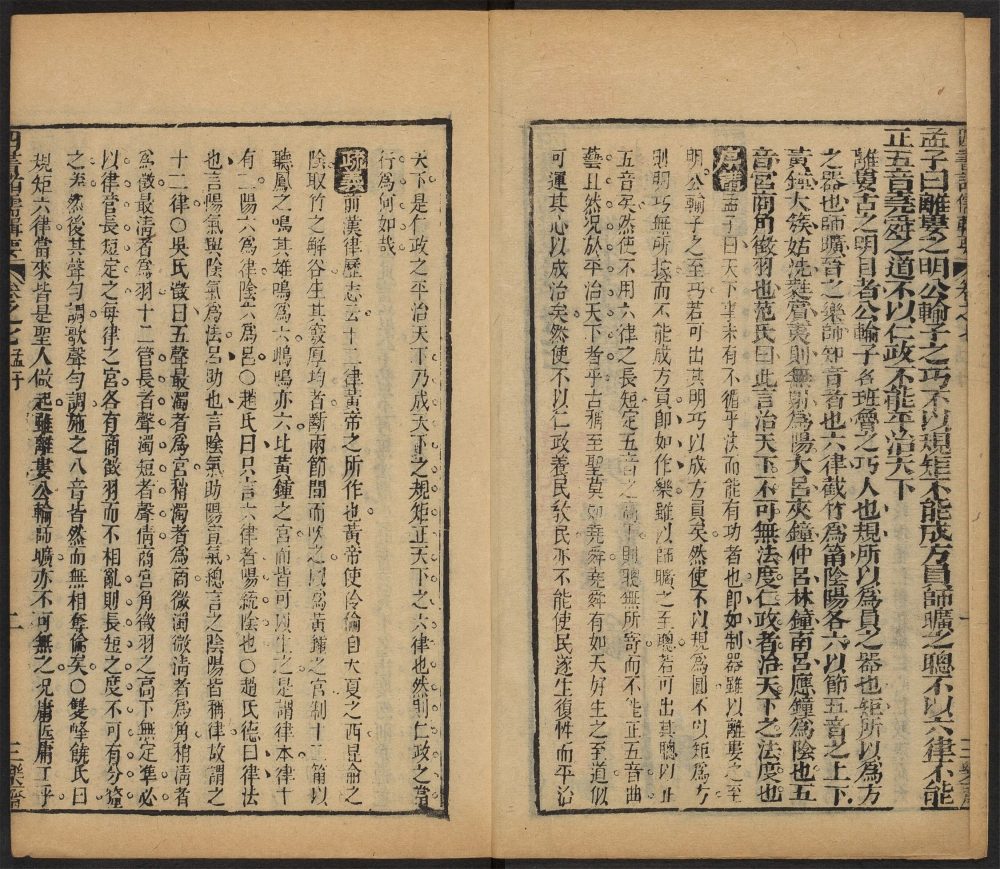 孟子曰離婁之明公輸子之巧不以規矩不能成方員師曠之聰不以六律不能
正五音堯舜之道不以仁政不能平治天下
離婁古之明目者公輸子名班魯之巧人也規所以為員之器也矩所以為方
之器也師曠晉之樂師知音者也六律截竹為筩陰陽各六以節五音之上下
黃鍾大蔟姑洗蕤賓夷則無射為陽大呂夾鐘仲呂林鐘南呂應鐘為陰也五
音宮商角徵羽也范氏曰此言治天下不可無法度仁政者治天下之法度也
孟子曰天下事未有不循乎法而能有功者也即如制器雖以離婁之至
明公輸子之至巧若可出其明巧以成方員矣然使不以規為圓不以矩為方
則明巧無所據而不能成方員即如作樂雖以師曠之至聰若可出其聰以正
五音矣然使不用六律之長短定五音之高下則聰無所寄而不能正五音曲
藝且然況於平治天下者乎古稱至聖莫如堯舜堯舜有如天好生之至道似
可運其心以成治矣然使不以仁政養民教民亦不能使民遂生復性而平治
天下是仁政之平治天下乃成天下之規矩正天下之六律也然則仁政之當
行為何如哉
疏義 前漢律歷志云十二律黃帝之所作也黃帝使伶倫自大夏之西昆侖之
陰取竹之解谷生其竅厚均者斷兩節間而吹之以為黃鍾之宮制十二筩以
聽鳳之鳴其雄鳴為六鳴亦六比黃鐘之宮而皆可以生之是謂律本律十
有二陽六為律陰六為呂○趙氏曰只言六律者陽統陰也○趙氏德曰律法
也言陽氣與陰氣為法呂助也言陰氣助陽宣氣總言之陰陽皆稱律故謂之
十二律○吳氏澂曰五聲最濁者為宮稍濁者為商微濁微清者為角稍清者
為徵最清者為羽十二管長者聲濁短者聲清商宮角徵羽之高下無定準必
以律管長短定之每律之宮各有商徵羽而不相亂則長短之度不可有分
之差然後其聲勻調歌聲勻調施之八音皆然而無相奪倫矣○雙峰饒氏曰
規矩六律當來皆是聖人做起雖離婁公輸師曠亦不可無之況庸匠庸工乎
四書諸儒輯要 卷之七 孟子 二 三樂齋